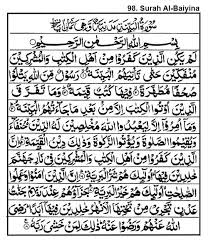 98. Surah Al-Baiyina
سُورَةُ الْبَيِّنَةِ مَدَنِيَّةٌ وَهِيَ ثَمَانُ اٰيَاتٍ
بِسْمِ اللهِ الرَّحْمٰنِ الرَّحِيْمِ
لَمْ يَكُنِ الَّذِيْنَ كَفَرُوْا مِنْ اَهْلِ الْكِتٰبِ وَالْمُشْرِكِيْنَ
مُنْفَكِّيْنَ حَتّٰى تَاْتِيَهُمُ الْبَيِّنَةُ رَسُوْلٌ مِّنَ اللهِ يَتْلُوْا
صُحُفًا مُّطَهَّرَةً فِيْهَا كُتُبٌ قَيِّمَةٌ وَمَا تَفَرَّقَ الَّذِيْنَ
اُوْتُوا الْكِتٰبَ اِلَّا مِنْۢ بَعْدِ مَا جَآءَتْهُمُ الْبَيِّنَةُ
وَمَآ اُمِرُوْٓا اِلَّا لِيَعْبُدُوا اللهَ مُخْلِصِيْنَ لَهُ الدِّيْنَ حُنَفَآءَ
وَيُقِيْمُوا الصَّلٰوةَ وَيُؤْتُوا الزَّكٰوةَ وَذٰلِكَ دِيْنُ الْقَيِّمَةِ اِنَّ
الَّذِيْنَ كَفَرُوْا مِنْ اَهْلِ الْكِتٰبِ وَالْمُشْرِكِيْنَ فِيْ نَارِ جَهَنَّمَ
خٰلِدِيْنَ فِيْهَا اُولٰٓئِكَ هُمْ شَرُّ الْبَرِيَّةِ اِنَّ الَّذِيْنَ اٰمَنُوْا وَعَمِلُوا
الصّٰلِحٰتِ اُولٰٓئِكَ هُمْ خَيْرُ الْبَرِيَّةِ جَزَآؤُهُمْ عِنْدَ رَبِّهِمْ جَنّٰتُ
عَدْنٍ تَجْرِيْ مِنْ تَحْتِهَا الْاَنْهٰرُ خٰلِدِيْنَ فِيْهَآ اَبَدًا رَضِيَ
اللهُ عَنْهُمْ وَرَضُوْا عَنْهُ ذٰلِكَ لِمَنْ خَشِيَ رَبَّهٗ